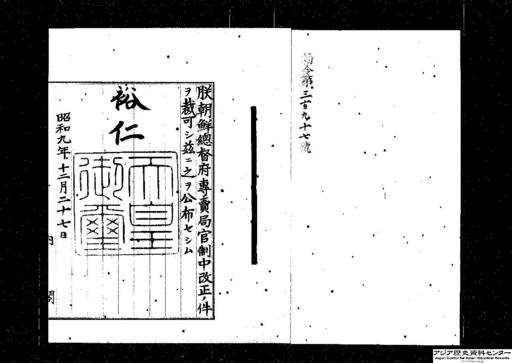 勅令第三百九十七號
朕朝鮮總督府專賣局官制中改正ノ件
ヲ裁可シ茲ニ之ヲ公布セシム
裕仁
天皇御璽
昭和九年十二月二十七日
内閣
アジア歴史資料センター
Japan Center for Asian Historical Records